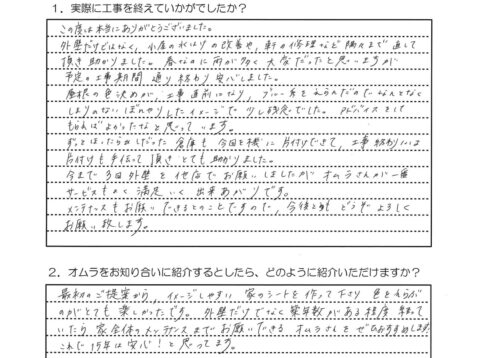 1．実際に工事を終えていかがでしたか？
この度は本当にありがとうございました。
外壁だけではなく、小屋の水はりの改善や、軒の修理など隅々まで直して
頂き助かりました。春なのに雨が多く大変だったと思いますが
予定の工事期間通り終わり安心しました。
屋根の色決めが、工事直前になり、ブルー系をえらんだのでなんとなく
しまりのないぼんやりしたイメージで少し残念でした。アドバイスをして
もらればよかったなと思っています。
ずっとほったらかしだった倉庫も今回を機に片付けできて、工事終わりには
片付けも手伝って頂きとても助かりました。
今まで3回外壁を他店でお願いしましたがオムラさんが一番
サービスもよく満足いく出来あがりです。
メンテナンスもお願いできるとのことですので、今後ともどうぞよろしく
お願い致します。
2．オムラをお知り合いに紹介するとしたら、どのように紹介いただけますか？
最初のご提案から、イメージしやすい家のシートを作って下さり色をえらぶ
のがとても楽しかったです。外壁だけでなく築年数がある程度経って
いたら家全体のメンテナンスまでお願いできるオムラさんをぜひおすすめします。
これで15年は安心！と思ってます。